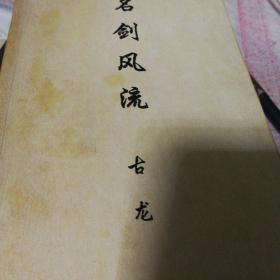 名剑风流
古龙